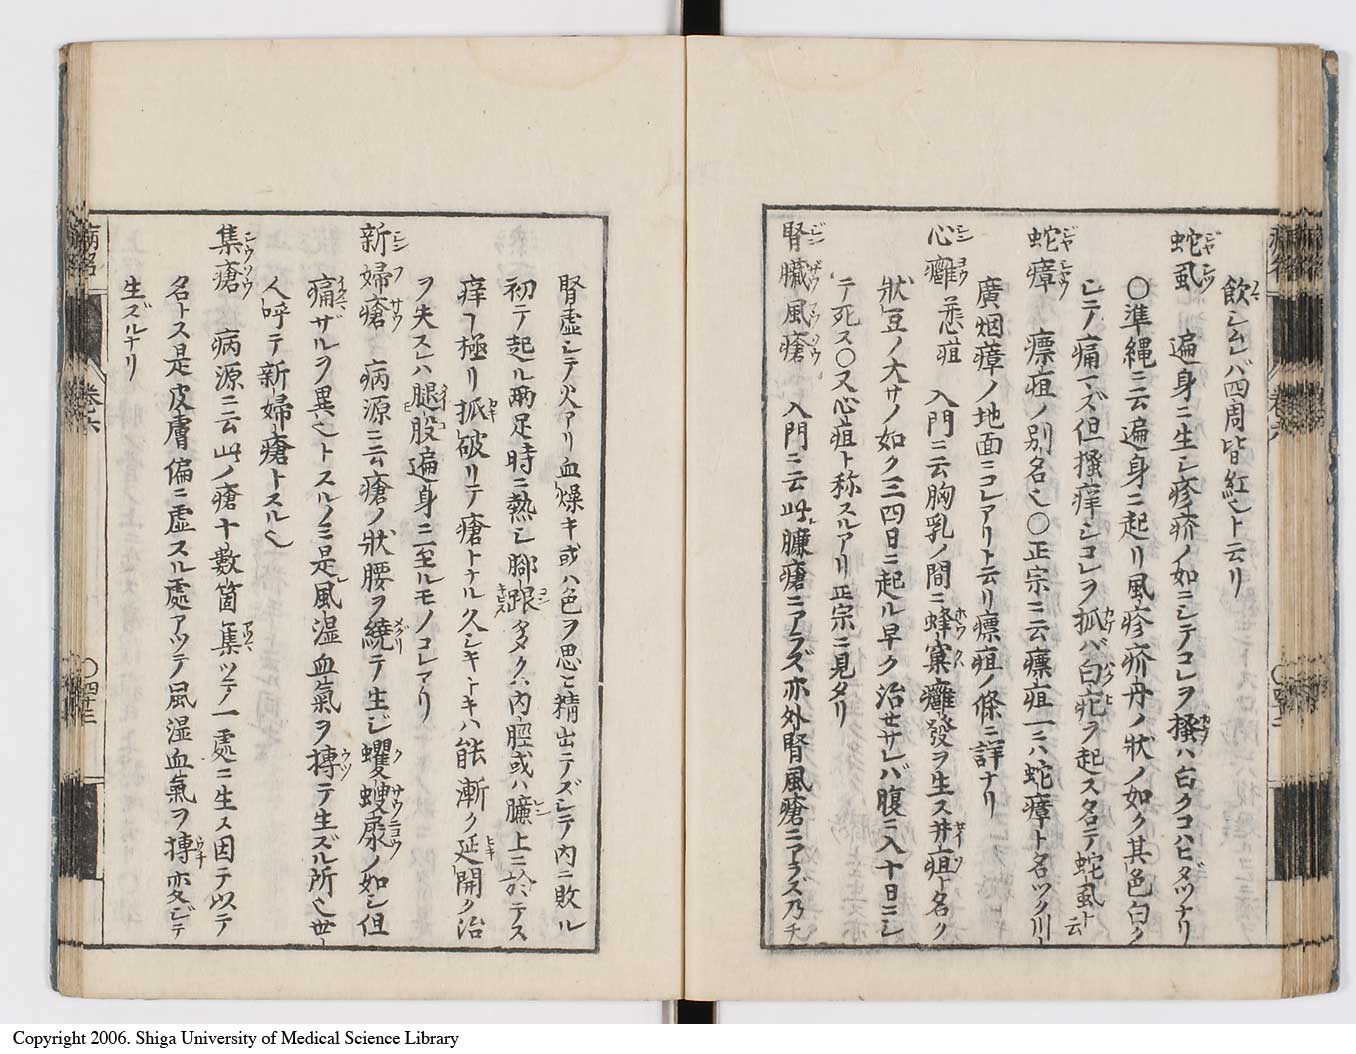 飲シムレバ四周皆紅シト云リ
蛇虱 遍身ニ生シ疹疥ノ如ニシテコレヲ搔ハ白クコハビタツナリ
〇準縄ニ云遍身ニ起リ風疹疥丹ノ状ノ如ク其色白ク
シテ痛マズ但搔痒シコレヲ抓バ白疕ヲ起ス名テ蛇虱ト云
蛇瘴 瘭疽ノ別名也〇正宗ニ云瘭疽一ニハ蛇瘴ト名ツク川
廣烟瘴ノ地面ニコレアリト云リ瘭疽ノ條ニ詳ナリ
心癰 入門ニ云胸乳ノ間ニ蜂窠癰發ヲ生ス井疽ト名ク
状豆ノ大サノ如ク三四日ニ起ル早ク治セサレバ腹ニ入十日ニシ
テ死ス〇又心疽ト称スルアリ正宗ニ見タリ
腎臓風瘡 入門ニ云此臁瘡ニアラズ亦外腎風瘡ニアラズ乃チ
腎虚シテ火アリ血燥キ或ハ色ヲ思ヒ精出テズシテ内ニ敗ル
初テ起ル兩足時ニ熱シ脚跟タタク内脛或ハ臁上ニ於テス
痒ヿ極リ抓破リテ瘡トナル久シキトキハ能漸ク延開ク治
ヲ失スレハ腿股遍身ニ至ルモノコレアリ
新婦瘡 病源ニ云瘡ノ狀腰ヲ繞テ生シ蠼螋尿ノ如シ但
痛ザルヲ異也トスルノミ是風湿血氣ヲ搏テ生ズル所也世
人呼テ新婦瘡トスル也
集瘡 病源ニ云此ノ瘡十數箇集ツテ一處ニ生ス因テ以テ
名トス是皮膚偏ニ虚スル處アツテ風湿血氣ヲ搏変ジテ
生ズルナリ
病名
巻六
〇四十三
Copyright 2006. Shiga University of Medical Science Library